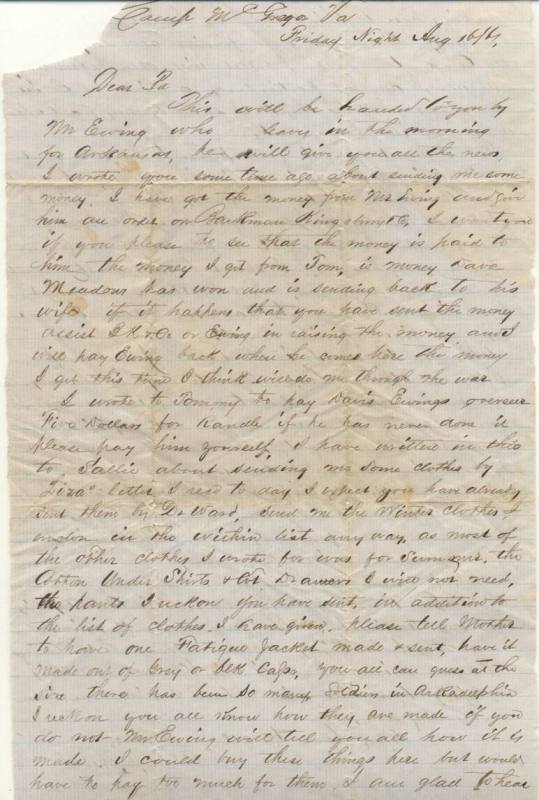 Camp Mc Gregor Va
Friday Night Aug 16th,
Dear Pa
This will be handed to you by
Mr Ewing who leaves in the morning
for Arkansas, he will give you all the news
I wrote you some time ago about sending me some
money. I have got the money from Mr Ewing and give
him an order on Barkman Kingsbury & Co I want you
if you please to see that the money is paid to
him the money I got from Tom, is money Dave
Meadors has won and is sending back to his
wife if it happens that you have sent the money
assist B K & Co or Ewing in raising the money and I
will pay Ewing back when he comes here the money
I get this time I think will do me through the war
I wrote to Tommy to pay Davis Ewings overseer
Five Dollars for Randle if he has never done it
please pay him yourself. I have written in this
to Sallie about sending me some clothes by
"Liza" letter I recd to day I expect you have already
sent them by Dr Ward, send me the Winter clothes &
in the within list any way, as most of
the other clothes I wrote for was for Summer, the
Cotton Under Shirts & Cot Drawers I will not need,
the pants I reckon you have sent, in addition to
the list of clothes I have given, please tell Mother
to have one Fatigue Jacket made & sent, have it
made out of Grey or Blk Cass, you all can guess at the
size there has been so many Soldiers in Arkadelphia
I reckon you all know how they are made if you
do not Mr Ewing will tell you all how it is
made. I could buy these things here but would
have to pay too much for them. I am glad to hear